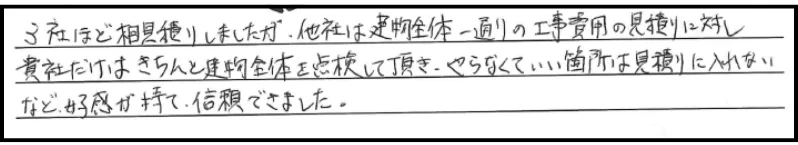 3社ほど相見積りしましたが、他社は建物全体一通りの工事費用の見積りに対し
貴社だけはきちんと建物全体を点検して頂き、やらなくていい箇所は見積りに入れない
など、好感が持て、信頼できました。